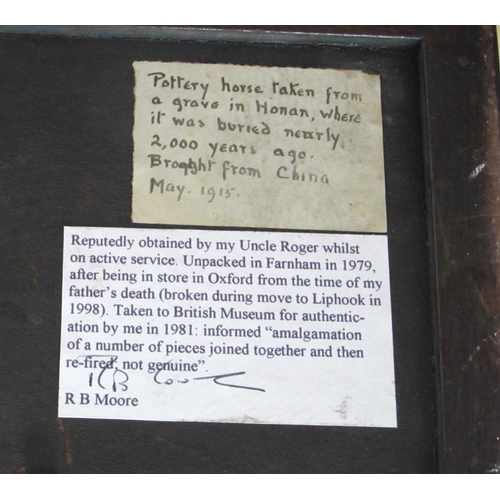 Pottery horse taken from
a grave in Honan, where
it was buried nearly
2,000 years ago.
Brought from China
May. 1915.
Reputedly obtained by my Uncle Roger whilst
on active service. Unpacked in Farnham in 1979,
after being in store in Oxford from the time of my
father's death (broken during move to Liphook in
1998). Taken to British Museum for authentic-
ation by me in 1981: informed "amalgamation
of a number of pieces joined together and then
re-fired, not genuine".
R B Moore